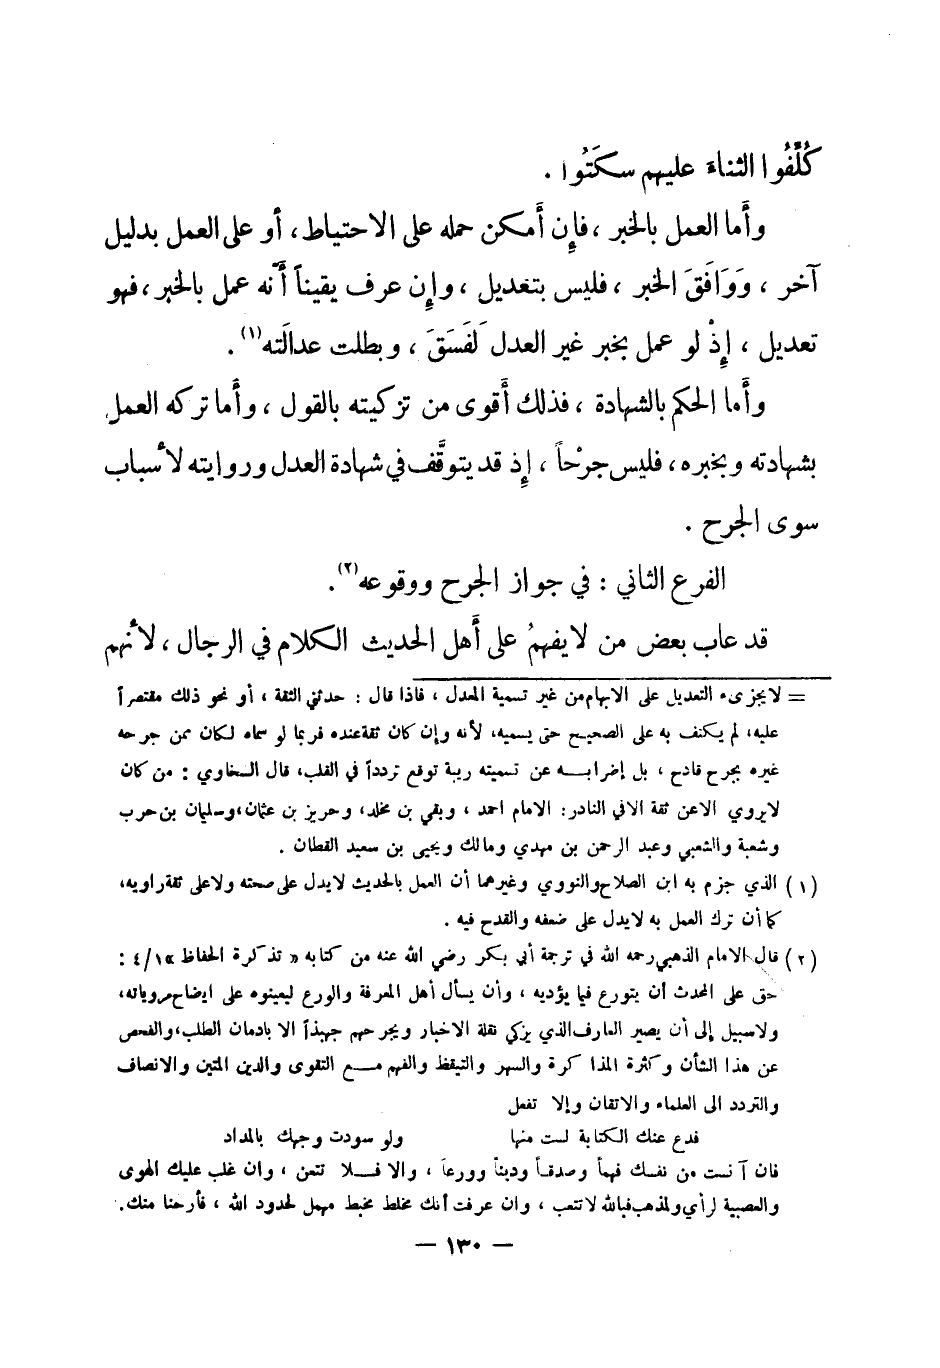 كُلِّفُوا الثناءَ عليهم سكَتُوا .
وأَما العمل بالخبر ، فإِن أَمكن حمله على الاحتياط ، أو على العمل بدليل
آخر ، وَوَافَقَ الخبر ، فليس بتعديل ، وإِن عرف يقيناً أَنه عمل بالخبر ، فهو
تعديل ، إِذْ لو عمل بخبر غير العدل لَفَسَقَ ، وبطلت عدالَته (١) .
وأَما الحكم بالشهادة ، فذلك أَقوى من تزكيته بالقول ، وأَما تركه العمل
بشهادته وبخبره ، فليس جرْحاً ، إِذ قد يتوقَّف في شهادة العدل وروايته لأسباب
سوى الجرح .
الفرع الثاني : في جواز الجرح ووقوعه (٢) .
قد عاب بعض من لا يفهمُ على أَهل الحديث الكلام في الرجال ، لأنهم
= لا يجزىء التعديل على الابهام من غير تسمية المعدل ، فاذا قال : حدثني الثقة ، أو نحو ذلك مقتصراً
عليه، لم يكتف به على الصحيح حتى يسميه، لأنه وإن كان ثقة عنده فربما لو سماه لكان ممن جرحه
غيره بجرح قادح ، بل إضرابه عن تسميته ريبة توقع تردداً في القلب، قال السخاوي : من كان
لا يروي الا عن ثقة الا في النادر: الامام احمد ، وبقي بن مخلد، وحريز بن عثمان، وسليمان بن حرب
وشعبة والشعبي وعبد الرحمن بن مهدي ومالك ويحيى بن سعيد القطان .
(١) الذي جزم به ابن الصلاح والنووي وغيرهما أن العمل بالحديث لا يدل على صحته ولا على ثقة راويه،
كما أن ترك العمل به لا يدل على ضعفه والقدح فيه .
(٢) قال الامام الذهبي رحمه الله في ترجمة أبي بكر رضي الله عنه من كتابه « تذكرة الحفاظ » ٤/١ :
حق على المحدث أن يتورع فيما يؤديه ، وأن يسأل أهل المعرفة والورع ليعينوه على ايضاح مروياته،
ولا سبيل إلى أن يصير العارف الذي يزكي نقلة الاخبار ويجرحهم جهبذاً الا بادمان الطلب، والفحص
عن هذا الشأن وكثرة المذاكرة والسهر والتيقظ والفهم مع التقوى والدين المتين والانصاف
والتردد الى العلماء والاتقان وإلا تفعل
فدع عنك الكتابة لست منها ولو سودت وجهك بالمداد
فان آنست من نفسك فهماً وصدقاً وديناً وورعاً ، والا فلا تتعن ، وان غلب عليك الهوى
والعصبية لرأي ولمذهب فبالله لا تتعب ، وان عرفت أنك مخلط مخبط مهمل لحدود الله ، فأرحنا منك.
— ١٣٠ —